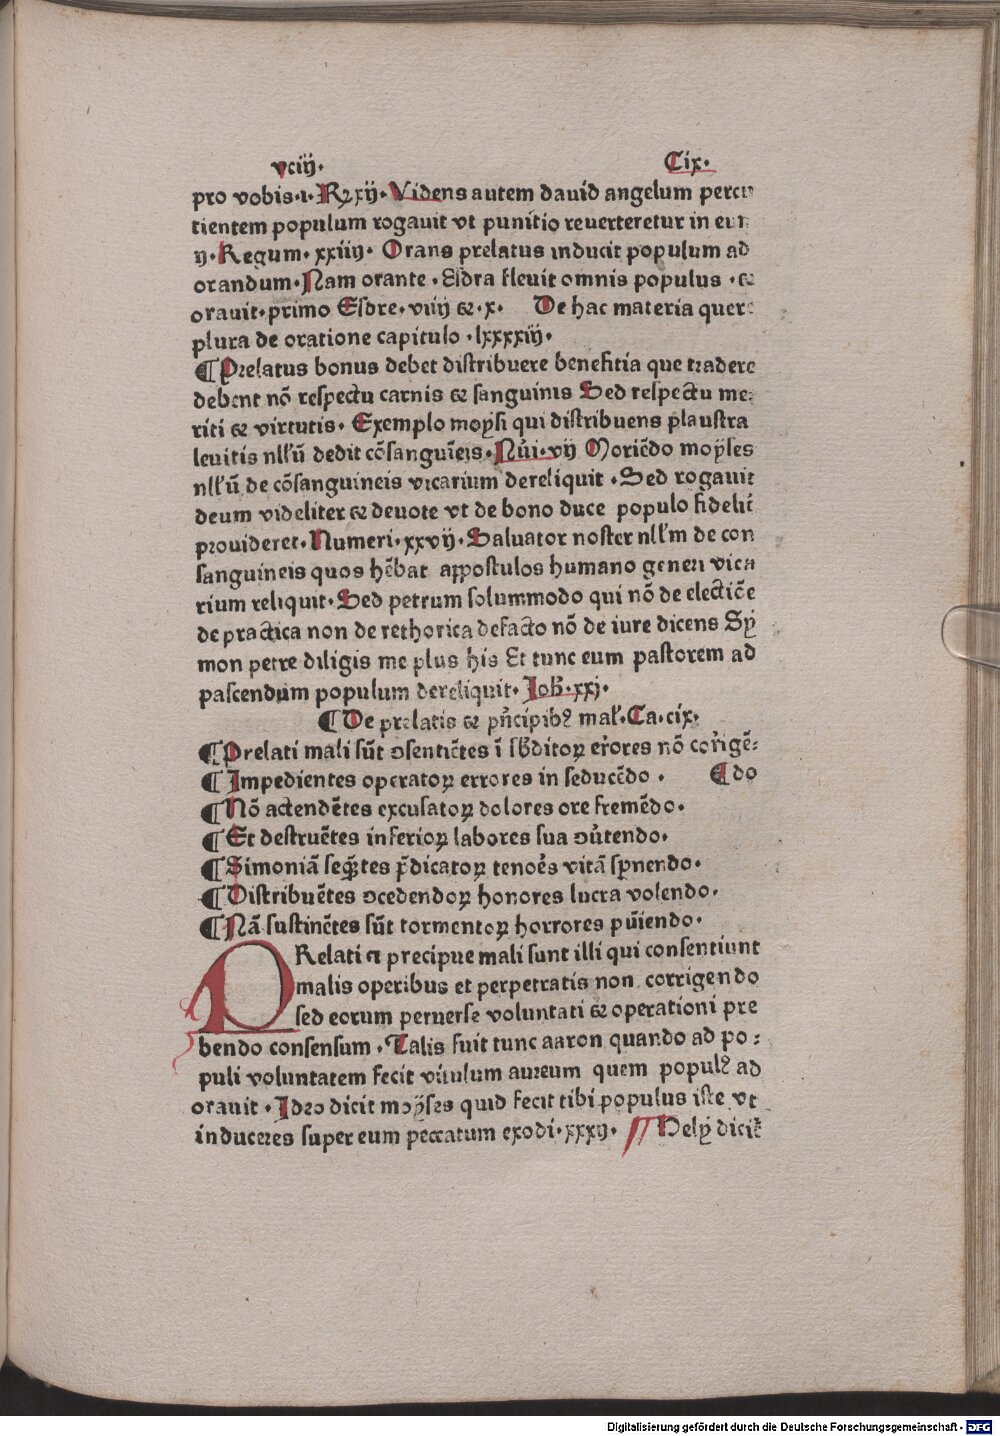 vciij. Cix.
pro vobis.i. Rꝝ xij. Videns autem dauid angelum percu
tientem populum rogauit vt punitio reuerteretur in eum
ij. Regum. xxiiij. Orans prelatus inducit populum ad
orandum. Nam orante. Esdra fleuit omnis populus. et
orauit. primo Esdre. viiij et .x. De hac materia quere
plura de oratione capitulo .lxxxxiij.
¶ Prelatus bonus debet distribuere benefitia que tradere
debent nō respectu carnis et sanguinis Sed respectu me:
riti et virtutis. Exemplo moysi qui distribuens plaustra
leuitis nllū dedit cōsanguīeis. Nūi. vij Moriēdo moyses
nllū de cōsanguineis vicarium dereliquit. Sed rogauit
deum videliter et deuote vt de bono duce populo fideliť
prouideret. Numeri. xxvij. Saluator noster nllm de con
sanguineis quos hēbat appostulos humano generi vica
rium reliquit. Sed petrum solummodo qui nō de electiōe
de practica non de rethorica defacto nō de iure dicens Sy
mon petre diligis me plus his Et tunc eum pastorem ad
pascendum populum dereliquit. Joh. xxj.
¶ De prelatis et pñcipibꝰ mal. Ca. cix.
¶ Prelati mali sūt ɔsentiētes ī sbditoꝝ erores nō corigē:
¶ Impedientes operatoꝝ errores in seducēdo. ¶ do
¶ Nō actendētes excusatoꝝ dolores ore fremēdo.
¶ Et destruētes inferioꝝ labores sua ɔūtendo.
¶ Simoniā seqētes pdicatoꝝ tenoes vitā spnendo.
¶ Distribuētes ɔcedendoꝝ honores lucra volendo.
¶ Nā sustinētes sūt tormentoꝝ horrores pūiendo.
PRelati a precipue mali sunt illi qui consentiunt
malis operibus et perpetratis non corrigendo
sed eorum peruerse voluntati et operationi pre
bendo consensum. Talis fuit tunc aaron quando ad po:
puli voluntatem fecit vitulum aureum quem populꝰ ad
orauit. Ideo dicit moyses quid fecit tibi populus iste vt
induceres super eum peccatum exodi. xxxij. ¶ Hely dicit
Digitalisierung gefördert durch die Deutsche Forschungsgemeinschaft - DFG